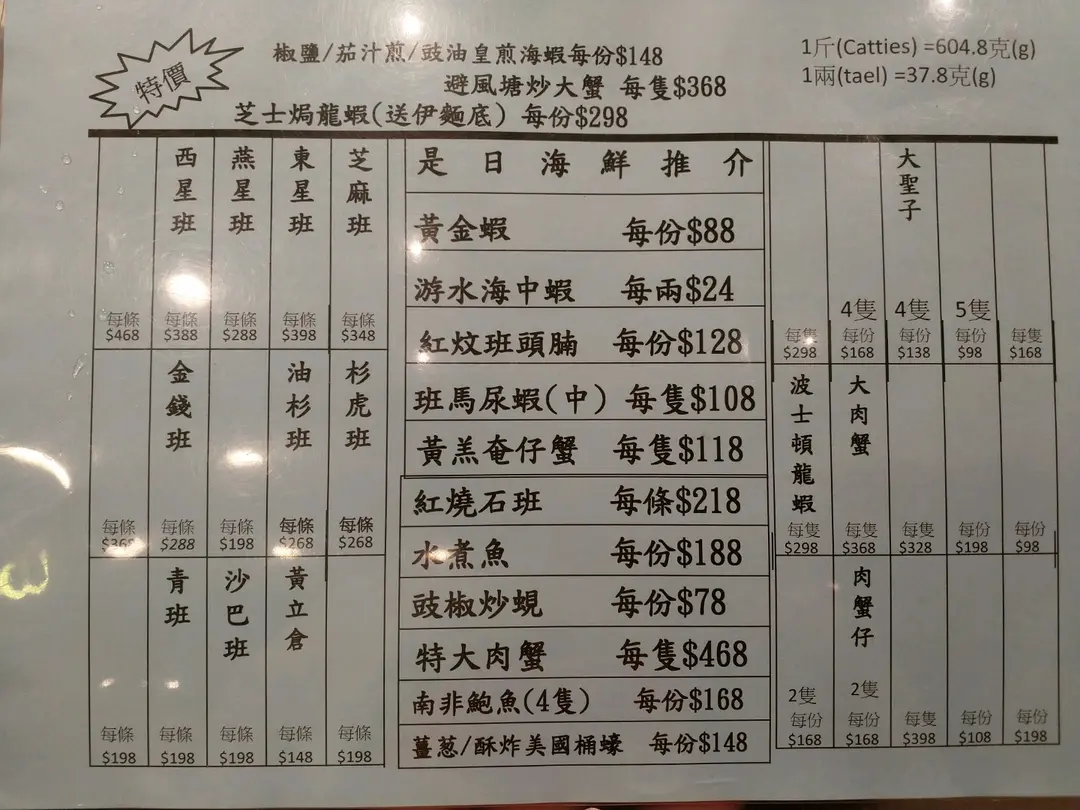 特價
椒鹽/茄汁煎/豉油皇煎海蝦每份$148
避風塘炒大蟹 每隻$368
芝士焗龍蝦(送伊麵底) 每份$298
1斤(Catties) =604.8克(g)
1兩(tael) =37.8克(g)
西星班 燕星班 東星班 芝麻班
每條 每條 每條 每條 每條
$468 $388 $288 $398 $348
金錢班 油杉班 杉虎班
每條 每條 每條 每條 每條
$368 $288 $198 $268 $268
青班 沙巴班 黃立倉
每條 每條 每條 每條 每條
$198 $198 $198 $148 $198
是日海鮮推介
黃金蝦 每份$88
游水海中蝦 每兩$24
紅炆班頭腩 每份$128
班馬尿蝦(中) 每隻$108
黃羔奄仔蟹 每隻$118
紅燒石班 每條$218
水煮魚 每份$188
豉椒炒蜆 每份$78
特大肉蟹 每隻$468
南非鮑魚(4隻) 每份$168
薑葱/酥炸美國桶蠔 每份$148
大聖子
4隻 4隻 5隻
每隻 每份 每份 每份 每隻
$298 $168 $138 $98 $168
波士頓龍蝦 大肉蟹
每隻 每隻 每隻 每份 每份
$298 $368 $328 $198 $98
肉蟹仔
2隻 2隻
每份 每份 每隻 每份 每份
$168 $168 $398 $108 $198